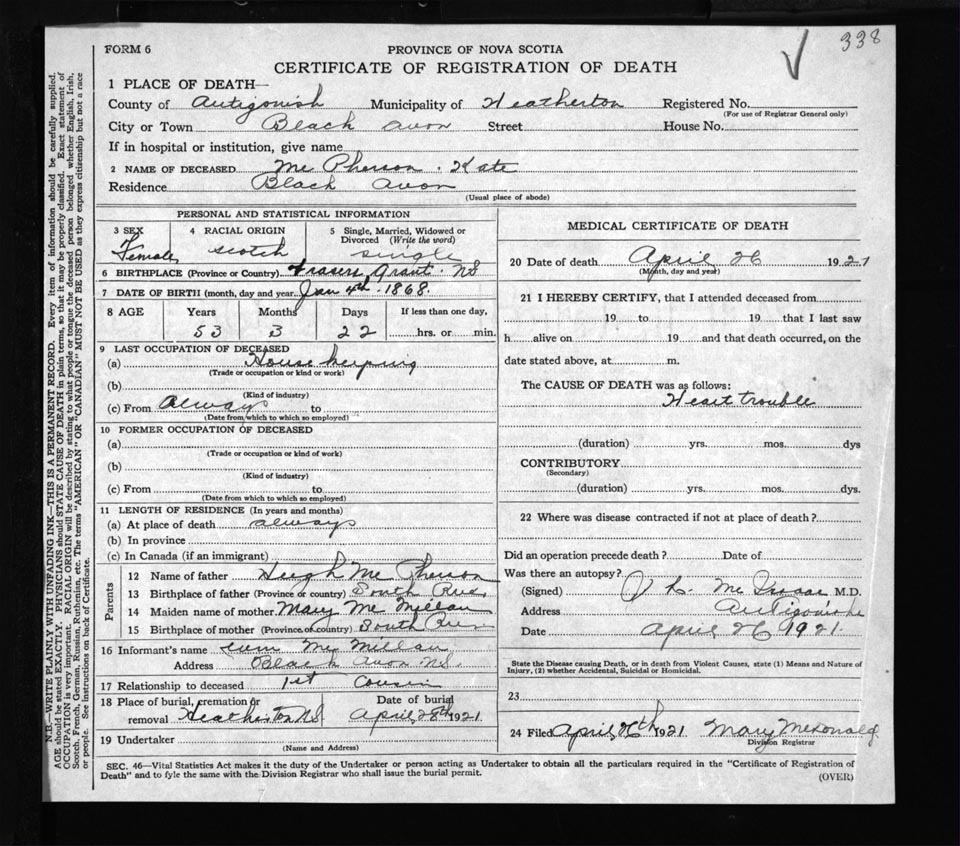 338
FORM 6
PROVINCE OF NOVA SCOTIA
CERTIFICATE OF REGISTRATION OF DEATH
1 PLACE OF DEATH—
County of Antigonish Municipality of Heatherton Registered No.
(For use of Registrar General only)
City or Town Black Avon Street House No.
If in hospital or institution, give name
2 NAME OF DECEASED Mc Pherson . Kate
Residence Black Avon
(Usual place of abode)
PERSONAL AND STATISTICAL INFORMATION
3 SEX 4 RACIAL ORIGIN 5 Single, Married, Widowed or Divorced (Write the word)
Female scotch single
6 BIRTHPLACE (Province or Country) Frasers Grant. NS
7 DATE OF BIRTH (month, day and year Jan 4th. 1868
8 AGE Years Months Days If less than one day,
53 3 22 hrs. or min.
9 LAST OCCUPATION OF DECEASED
(a) House keeping
(Trade or occupation or kind or work)
(b)
(Kind of industry)
(c) From always to
(Date from which to which so employed)
10 FORMER OCCUPATION OF DECEASED
(a)
(Trade or occupation or kind of work)
(b)
(Kind of industry)
(c) From to
(Date from which to which so employed)
11 LENGTH OF RESIDENCE (In years and months)
(a) At place of death always
(b) In province
(c) In Canada (if an immigrant)
Parents
12 Name of father Hugh Mc Pherson
13 Birthplace of father (Province or country) South River
14 Maiden name of mother Mary Mc Millan
15 Birthplace of mother (Province or country) South River
16 Informant's name Mc Millan
Address Black Avon NS.
17 Relationship to deceased 1st Cousin
18 Place of burial, cremation or removal Heatherton NS Date of burial April 28th 1921
19 Undertaker
(Name and Address)
MEDICAL CERTIFICATE OF DEATH
20 Date of death April 26 1921
(Month, day and year)
21 I HEREBY CERTIFY, that I attended deceased from
19 to 19 that I last saw
h alive on 19 and that death occurred, on the
date stated above, at m.
The CAUSE OF DEATH was as follows:
Heart trouble
(duration) yrs. mos. dys
CONTRIBUTORY
(Secondary)
(duration) yrs. mos. dys.
22 Where was disease contracted if not at place of death?
Did an operation precede death? Date of
Was there an autopsy?
(Signed) Mc Isaac M.D.
Address Antigonish
Date April 26 1921
State the Disease causing Death, or in death from Violent Causes, state (1) Means and Nature of
Injury, (2) whether Accidental, Suicidal or Homicidal.
23
24 Filed April 26th 1921 Mary McDonald
Division Registrar
SEC. 46—Vital Statistics Act makes it the duty of the Undertaker or person acting as Undertaker to obtain all the particulars required in the "Certificate of Registration of
Death" and to fyle the same with the Division Registrar who shall issue the burial permit.
(OVER)
N.B.—WRITE PLAINLY WITH UNFADING INK—THIS IS A PERMANENT RECORD. Every item of information should be carefully supplied.
AGE should be stated EXACTLY. PHYSICIANS should STATE CAUSE OF DEATH in plain terms, so that it may be properly classified. Exact statement of
OCCUPATION is very important. RACIAL ORIGIN will be described by stating to what people or tongue the deceased person belonged whether English, Irish,
Scotch, French, German, Russian, Ruthenian, etc. The terms "AMERICAN" OR "CANADIAN" MUST NOT BE USED as they express citizenship but not a race
or people. See instructions on back of Certificate.